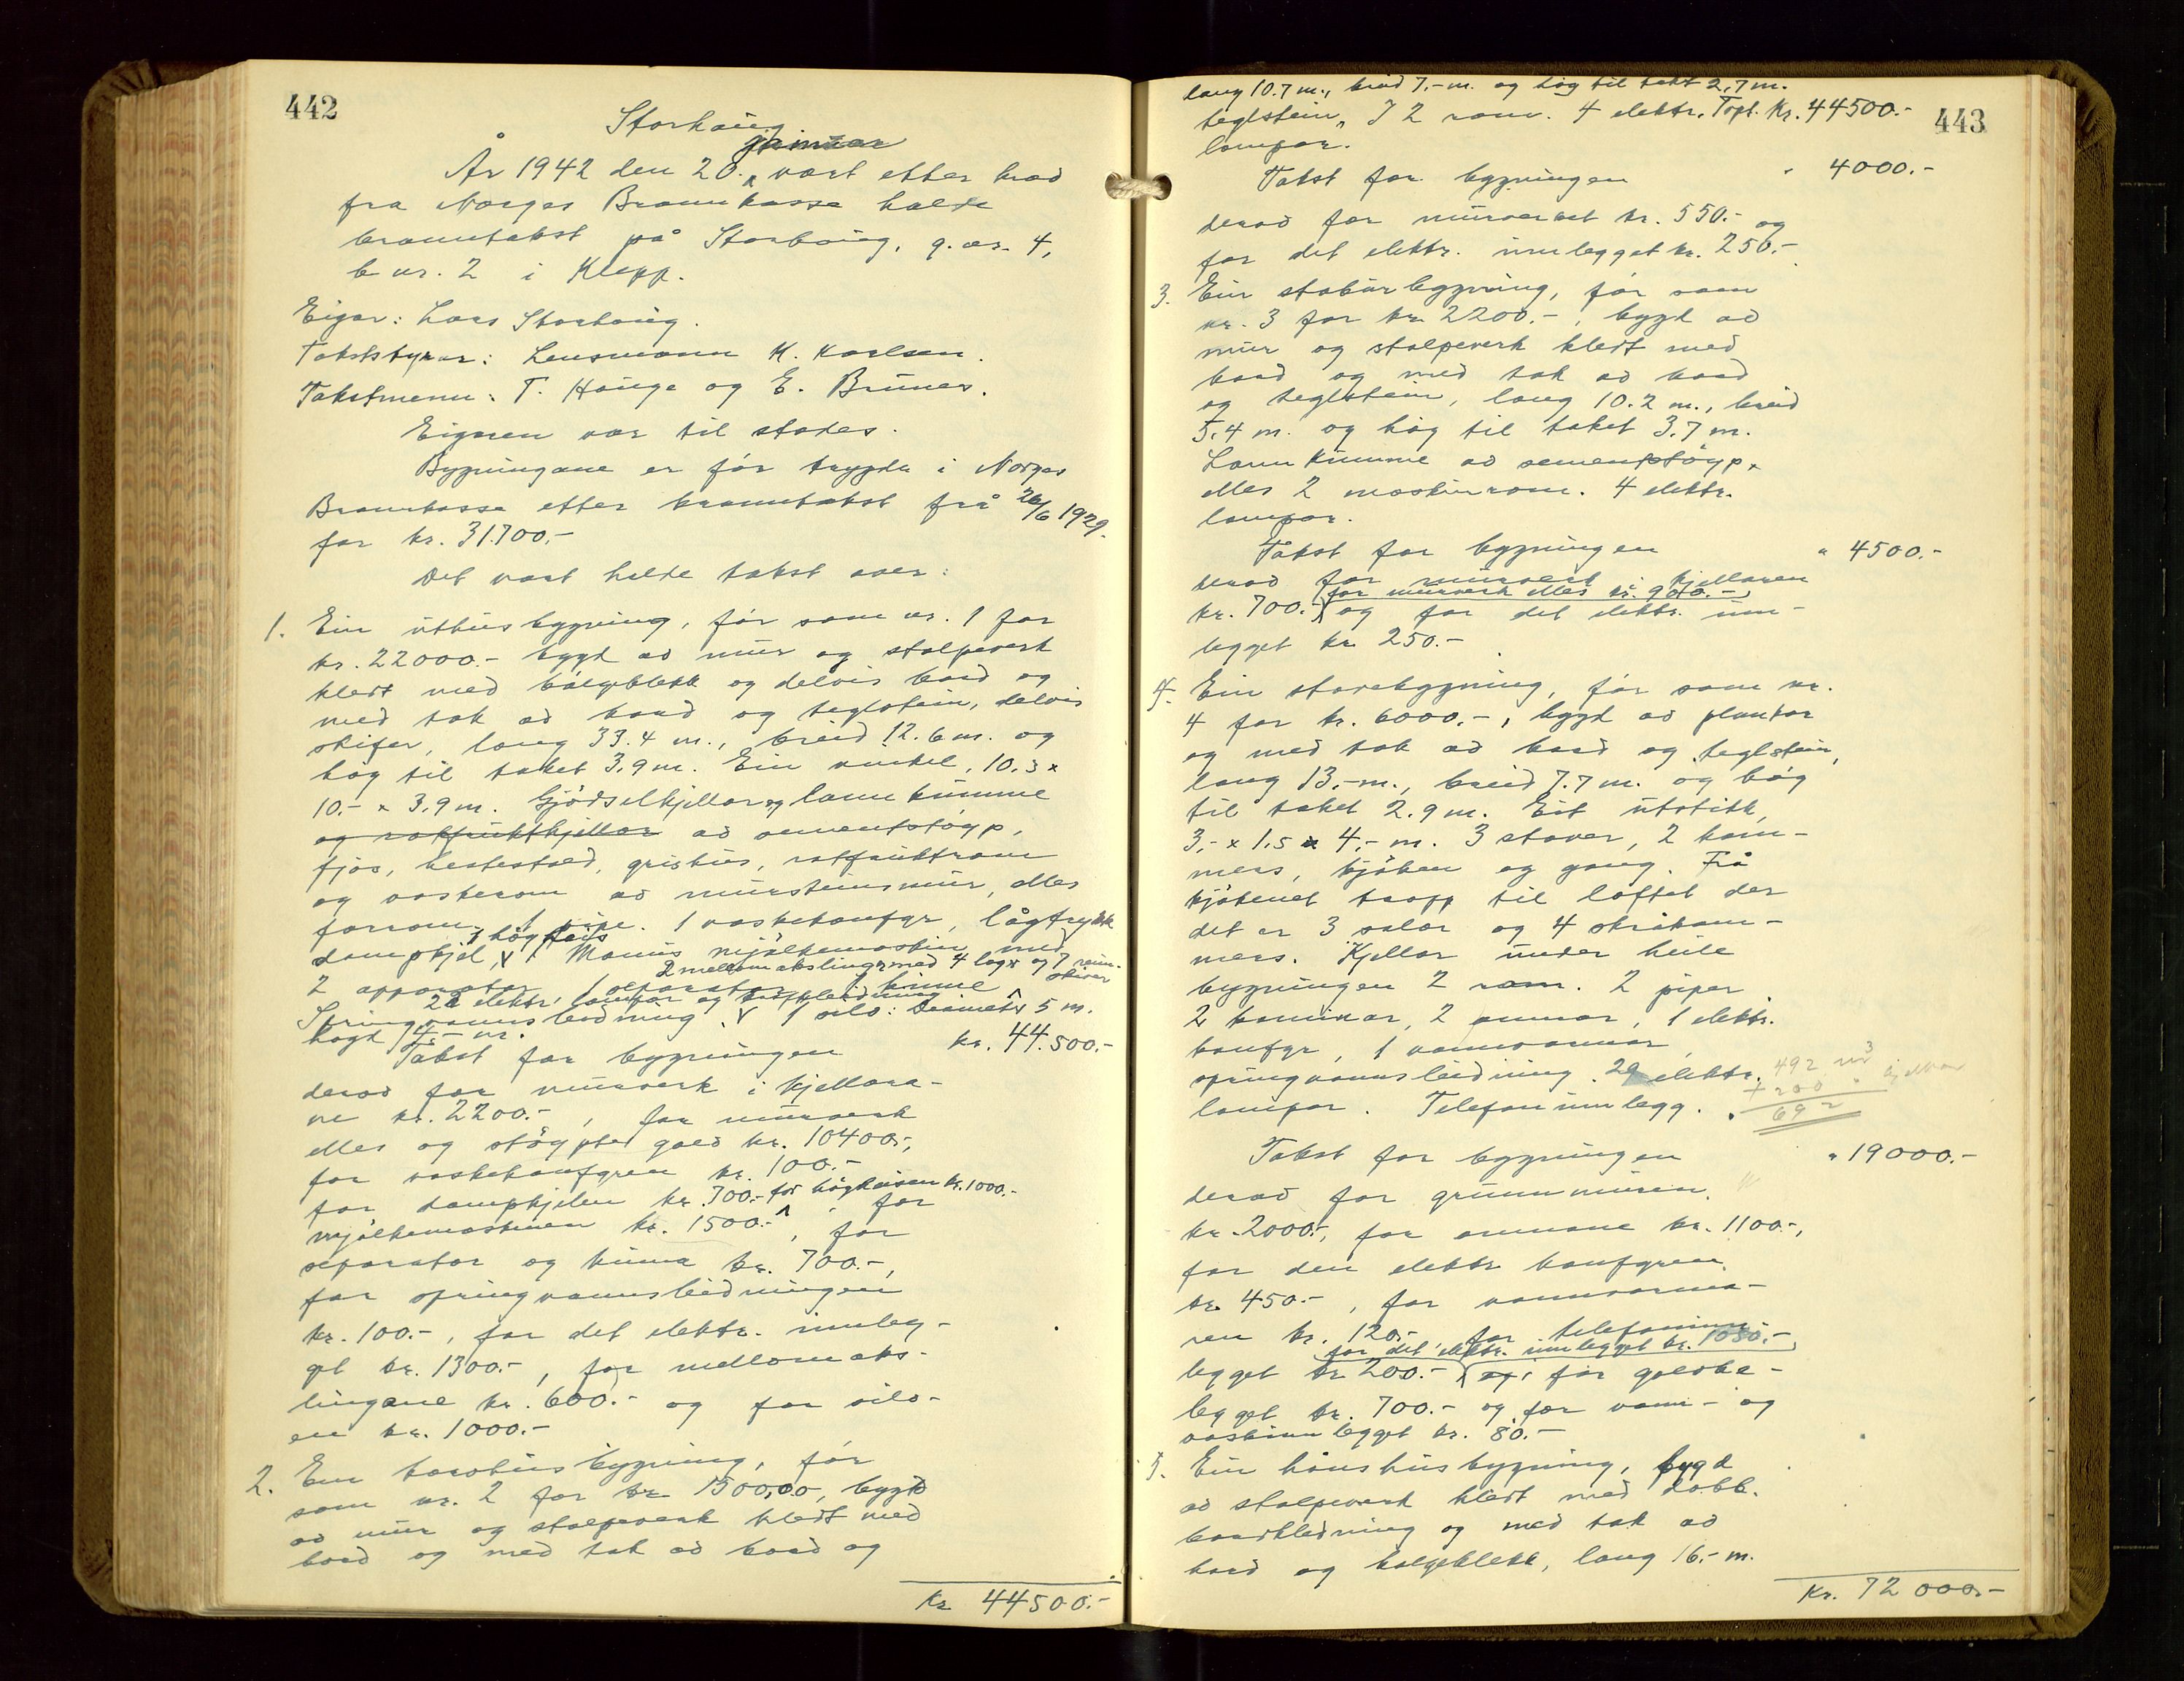 442
Storhaug
januar
År 1942 den 20. vart etter krav
fra Norges Brannkasse halde
branntakst på Storhaug, g.nr. 4,
b nr. 2 i Klepp.
Eigar: Lars Storhaug.
Takststyrar: Lensmann K. Karlsen.
Takstmenn: T. Hauge og E. Brunes.
Eigaren var til stades.
Bygningane er før trygda i Norges
Brannkasse etter branntakst frå 26/6 1929.
for kr. 31.700.-
Det vart halde takst over:
1. Ein uthusbygning, før som nr. 1 for
kr. 22000.- bygd av mur og stolpeverk
kledt med bølgeblekk og delvis bord og
med tak av bord og teglstein, delvis
skifer, lang 33.4 m., breid 12.6 m. og
høg til taket 3.9 m. Ein vinkel, 10.3 x
10.- x 3.9 m. Gjødselkjellar og lannkumme
og rotfruktkjellar av sementstøyp,
fjøs, hestestald, grishus, rotfruktrom
og vaskerom av mursteinsmur, elles
forrom. 1 pipe. 1 vaskekomfyr, lågtrykk
dampkjel, 1 Manus mjølkemaskin med
1 høgheis
2 apparater, 1 separator, 1 kinne
2 mellomakslingar med 4 lag og 7 reim-
skiver
Springvannsleidning. 1 silo: Diameter 5 m.
22 elektr. lampar og kraftleidning
høgd 4.- m.
Takst for bygningen kr. 44.500.-
derav for murverk i kjellara-
ne kr. 2200.-, for murverk
elles og støypte golv kr. 10400.-,
for vaskekomfyren kr. 100.-
for dampkjelen kr. 700.- for høgheisen kr. 1000.-
mjølkemaskinen kr. 1500.-, for
separator og kinna kr. 700.-,
for springvannsleidningen
kr. 100.-, for det elektr. innleg-
get kr. 1300.-, for mellomaks-
lingane kr. 600.- og for silo-
en kr. 1000.-
2. Ein torvhusbygning, før
som nr. 2 for kr. 1500,00, bygd
av mur og stolpeverk kledt med
bord og med tak av bord og
Kr 44500.-
443
lang 10.7 m., breid 7.- m. og høg til taket 2.7 m.
teglstein, I 2 rom. 4 elektr. Topt. Kr. 44500.-
lampar.
Takst for bygningen " 4000.-
derav for murverket kr. 550.- og
for det elektr. innlegget kr. 250.-
3. Ein stabursbygning, før som
nr. 3 for kr. 2200.-, bygd av
mur og stolpeverk kledt med
bord og med tak av bord
og teglstein, lang 10.2 m., breid
5.4 m. og høg til taket 3.7 m.
Lannkumme av sementstøyp,
elles 2 maskinrom. 4 elektr.
lampar.
Takst for bygningen " 4500.-
derav for murverk i kjellaren
for murverk elles kr. 900.-
kr. 700.- og for det elektr. inn-
legget kr. 250.-
4. Ein stovebygning, før som nr.
4 for kr. 6000.-, bygd av plankar
og med tak av bord og teglstein,
lang 13.- m., breid 7.7 m. og høg
til taket 2.9 m. Eit utstikk,
3.- x 1.5 x 4.- m. 3 stover, 2 kam-
mers, kjøken og gang. Frå
kjøkenet trapp til loftet der
det er 3 salar og 4 skråkam-
mers. Kjellar under heile
bygningen 2 rom. 2 piper
2 kaminar, 2 omnar, 1 elektr.
komfyr, 1 vannvarmar,
springvannsleidning. 29 elektr.
lampar. Telefoninnlegg.
492 m3
+ 200 " kjellar
692
Takst for bygningen " 19000.-
derav for grunnmuren
kr. 2000.-, for omnane kr. 1100.-,
for den elektr. komfyren
kr. 450.-, for vannvarma-
ren kr. 120.-, for telefoninn-
for det elektr. innlegget kr. 1050.-
legget kr 200.- og for golvbe-
legget kr. 700.- og for vann- og
vaskinnlegget kr. 80.-
5. Ein hønshusbygning, bygd
av stolpeverk kledt med dobb.
bordkledning og med tak av
bord og bølgeblekk, lang 16.- m.
Kr. 72 000.-